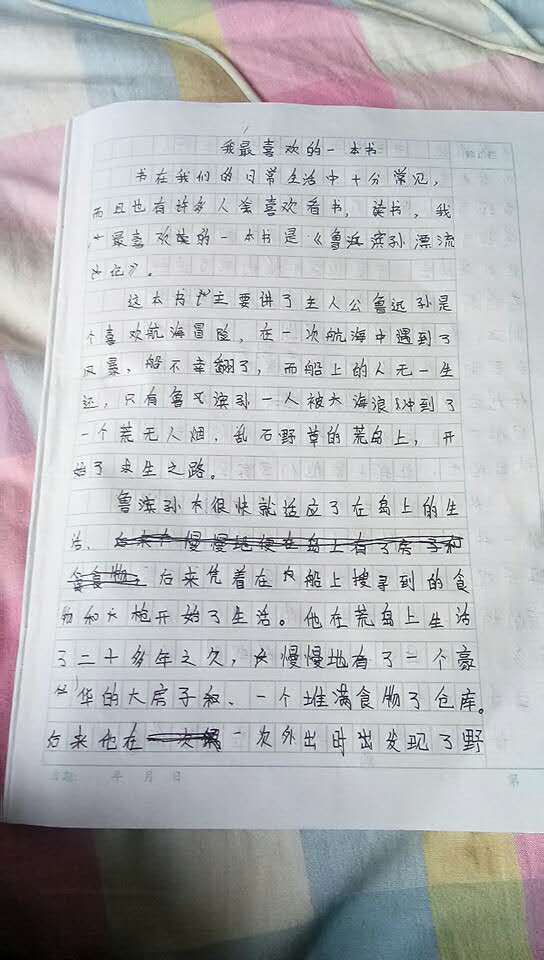 我最喜欢的一本书
书在我们的日常生活中十分常见，
而且也有许多人会喜欢看书，读书，我
最喜欢的一本书是《鲁滨孙漂流
记》。
这本书主要讲了主人公鲁远孙是
个喜欢航海冒险，在一次航海中遇到了
风暴，船不幸翻了，而船上的人无一生
还，只有鲁滨孙一人被大海浪冲到了
一个荒无人烟，乱石野草的荒岛上，开
始了求生之路。
鲁滨孙很快就适应了在岛上的生
活，
后来凭着在船上搜寻到的食
物和火枪开始了生活。他在荒岛上生活
了二十多年之久，慢慢地有了一个豪
华的大房子、一个堆满食物了仓库。
后来他在一次外出时出发现了野
年 月 日
第